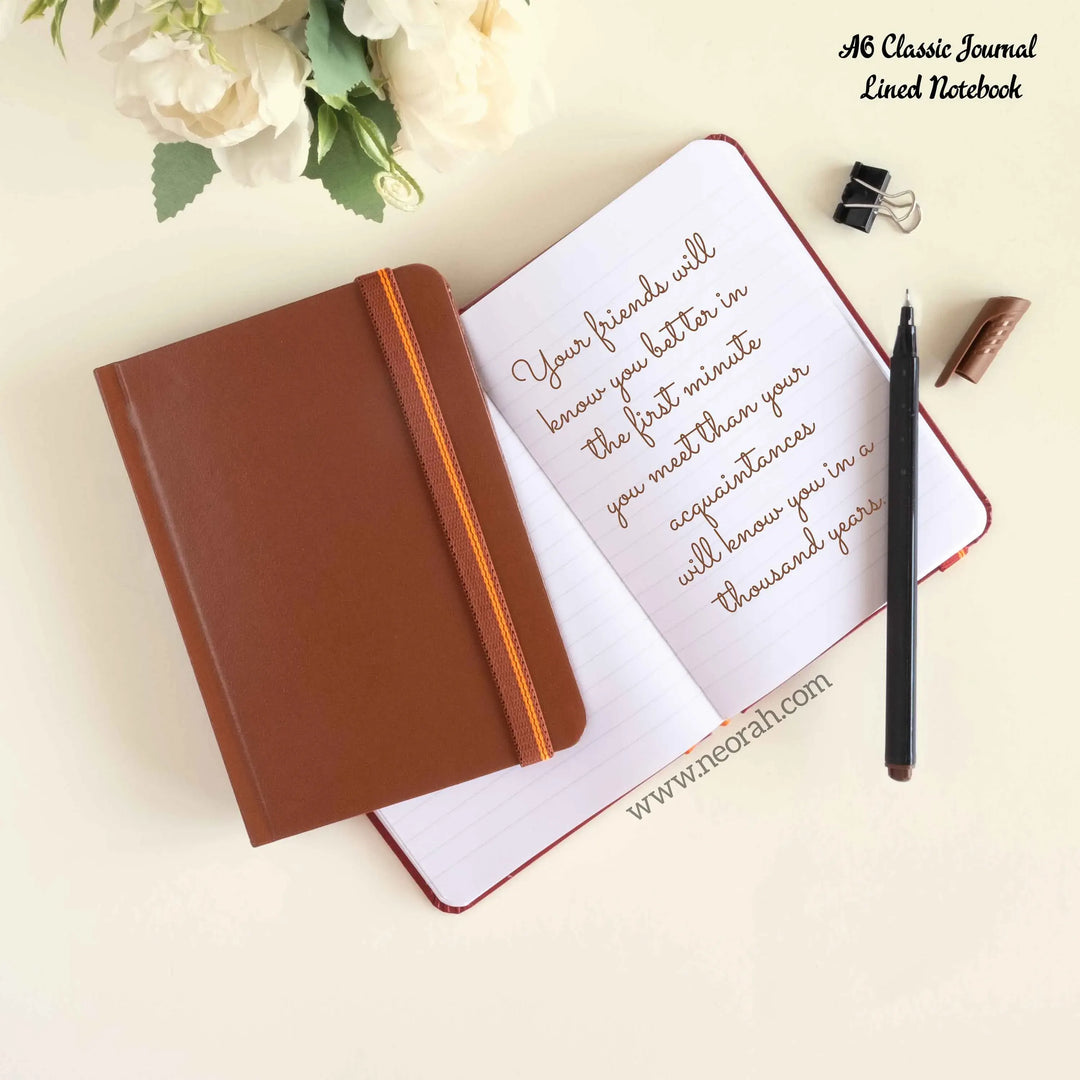 A6 Classic Journal
Lined Notebook
Your friends will
know you better in
the first minute
you meet than your
acquaintances
will know you in a
thousand years.
www.neorah.com